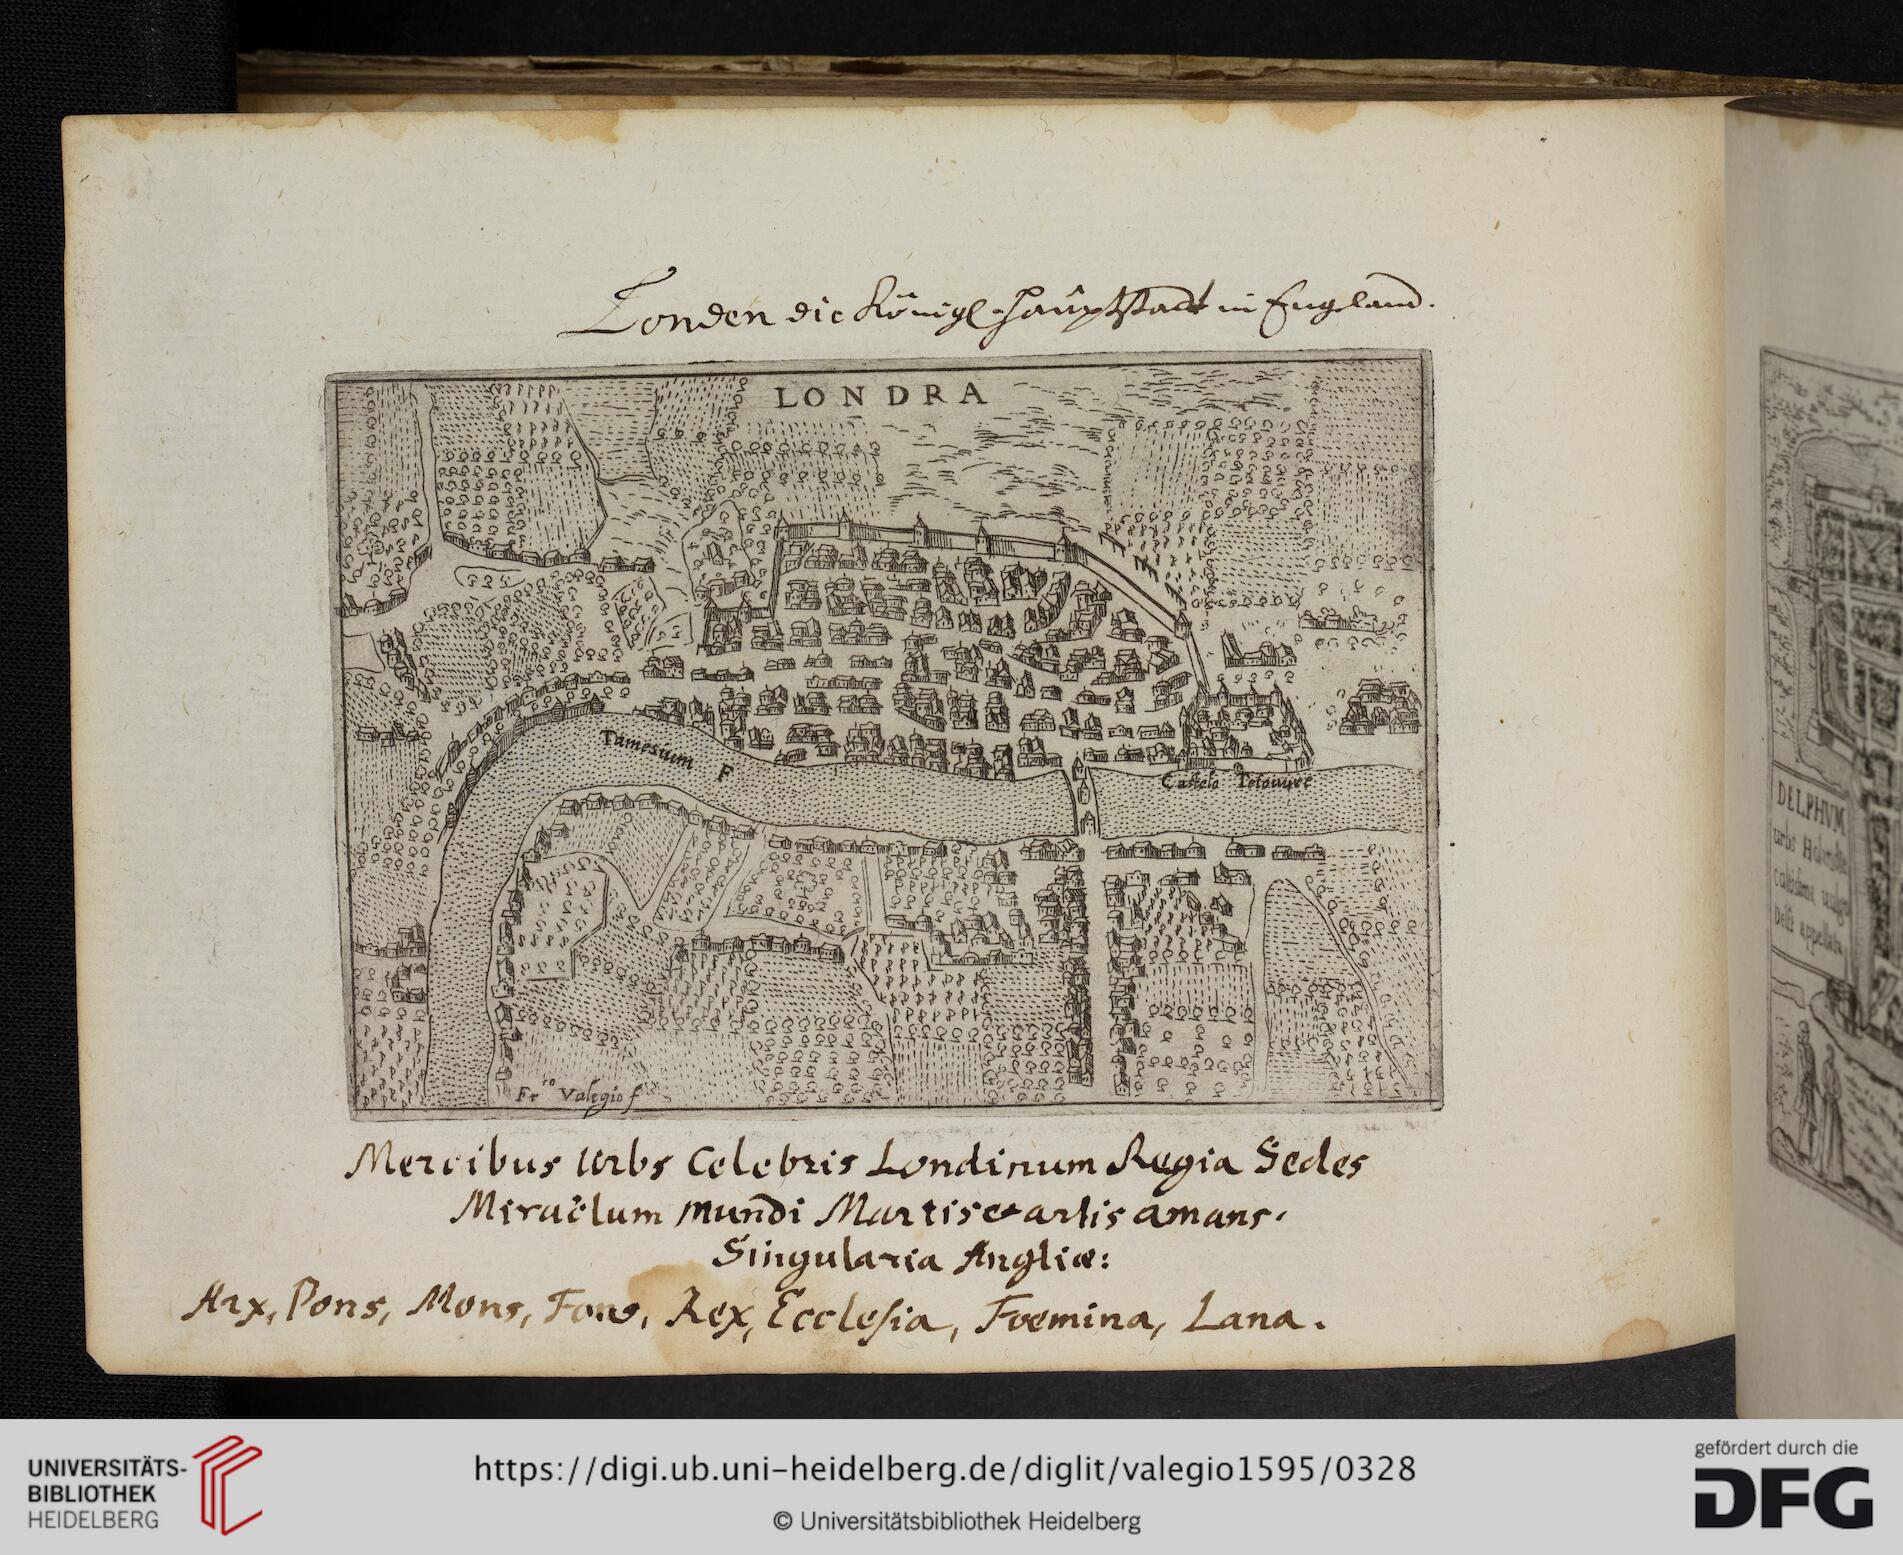 Londen die Königl. Hauptstadt in England.
LONDRA
Tamesum F
Castelo
Fr.co Valegio f
Mercibus Urbs Celebris Londinum Regia Sedes
Miracĺum mundi Martis et artis amans.
Singularia Angliæ:
Arx, Pons, Mons, Fons, Rex, Ecclesia, Foemina, Lana.
DELPHVM
urbs
Delft appellata
UNIVERSITÄTS-
BIBLIOTHEK
HEIDELBERG
https://digi.ub.uni-heidelberg.de/diglit/valegio1595/0328
© Universitätsbibliothek Heidelberg
gefördert durch die
DFG